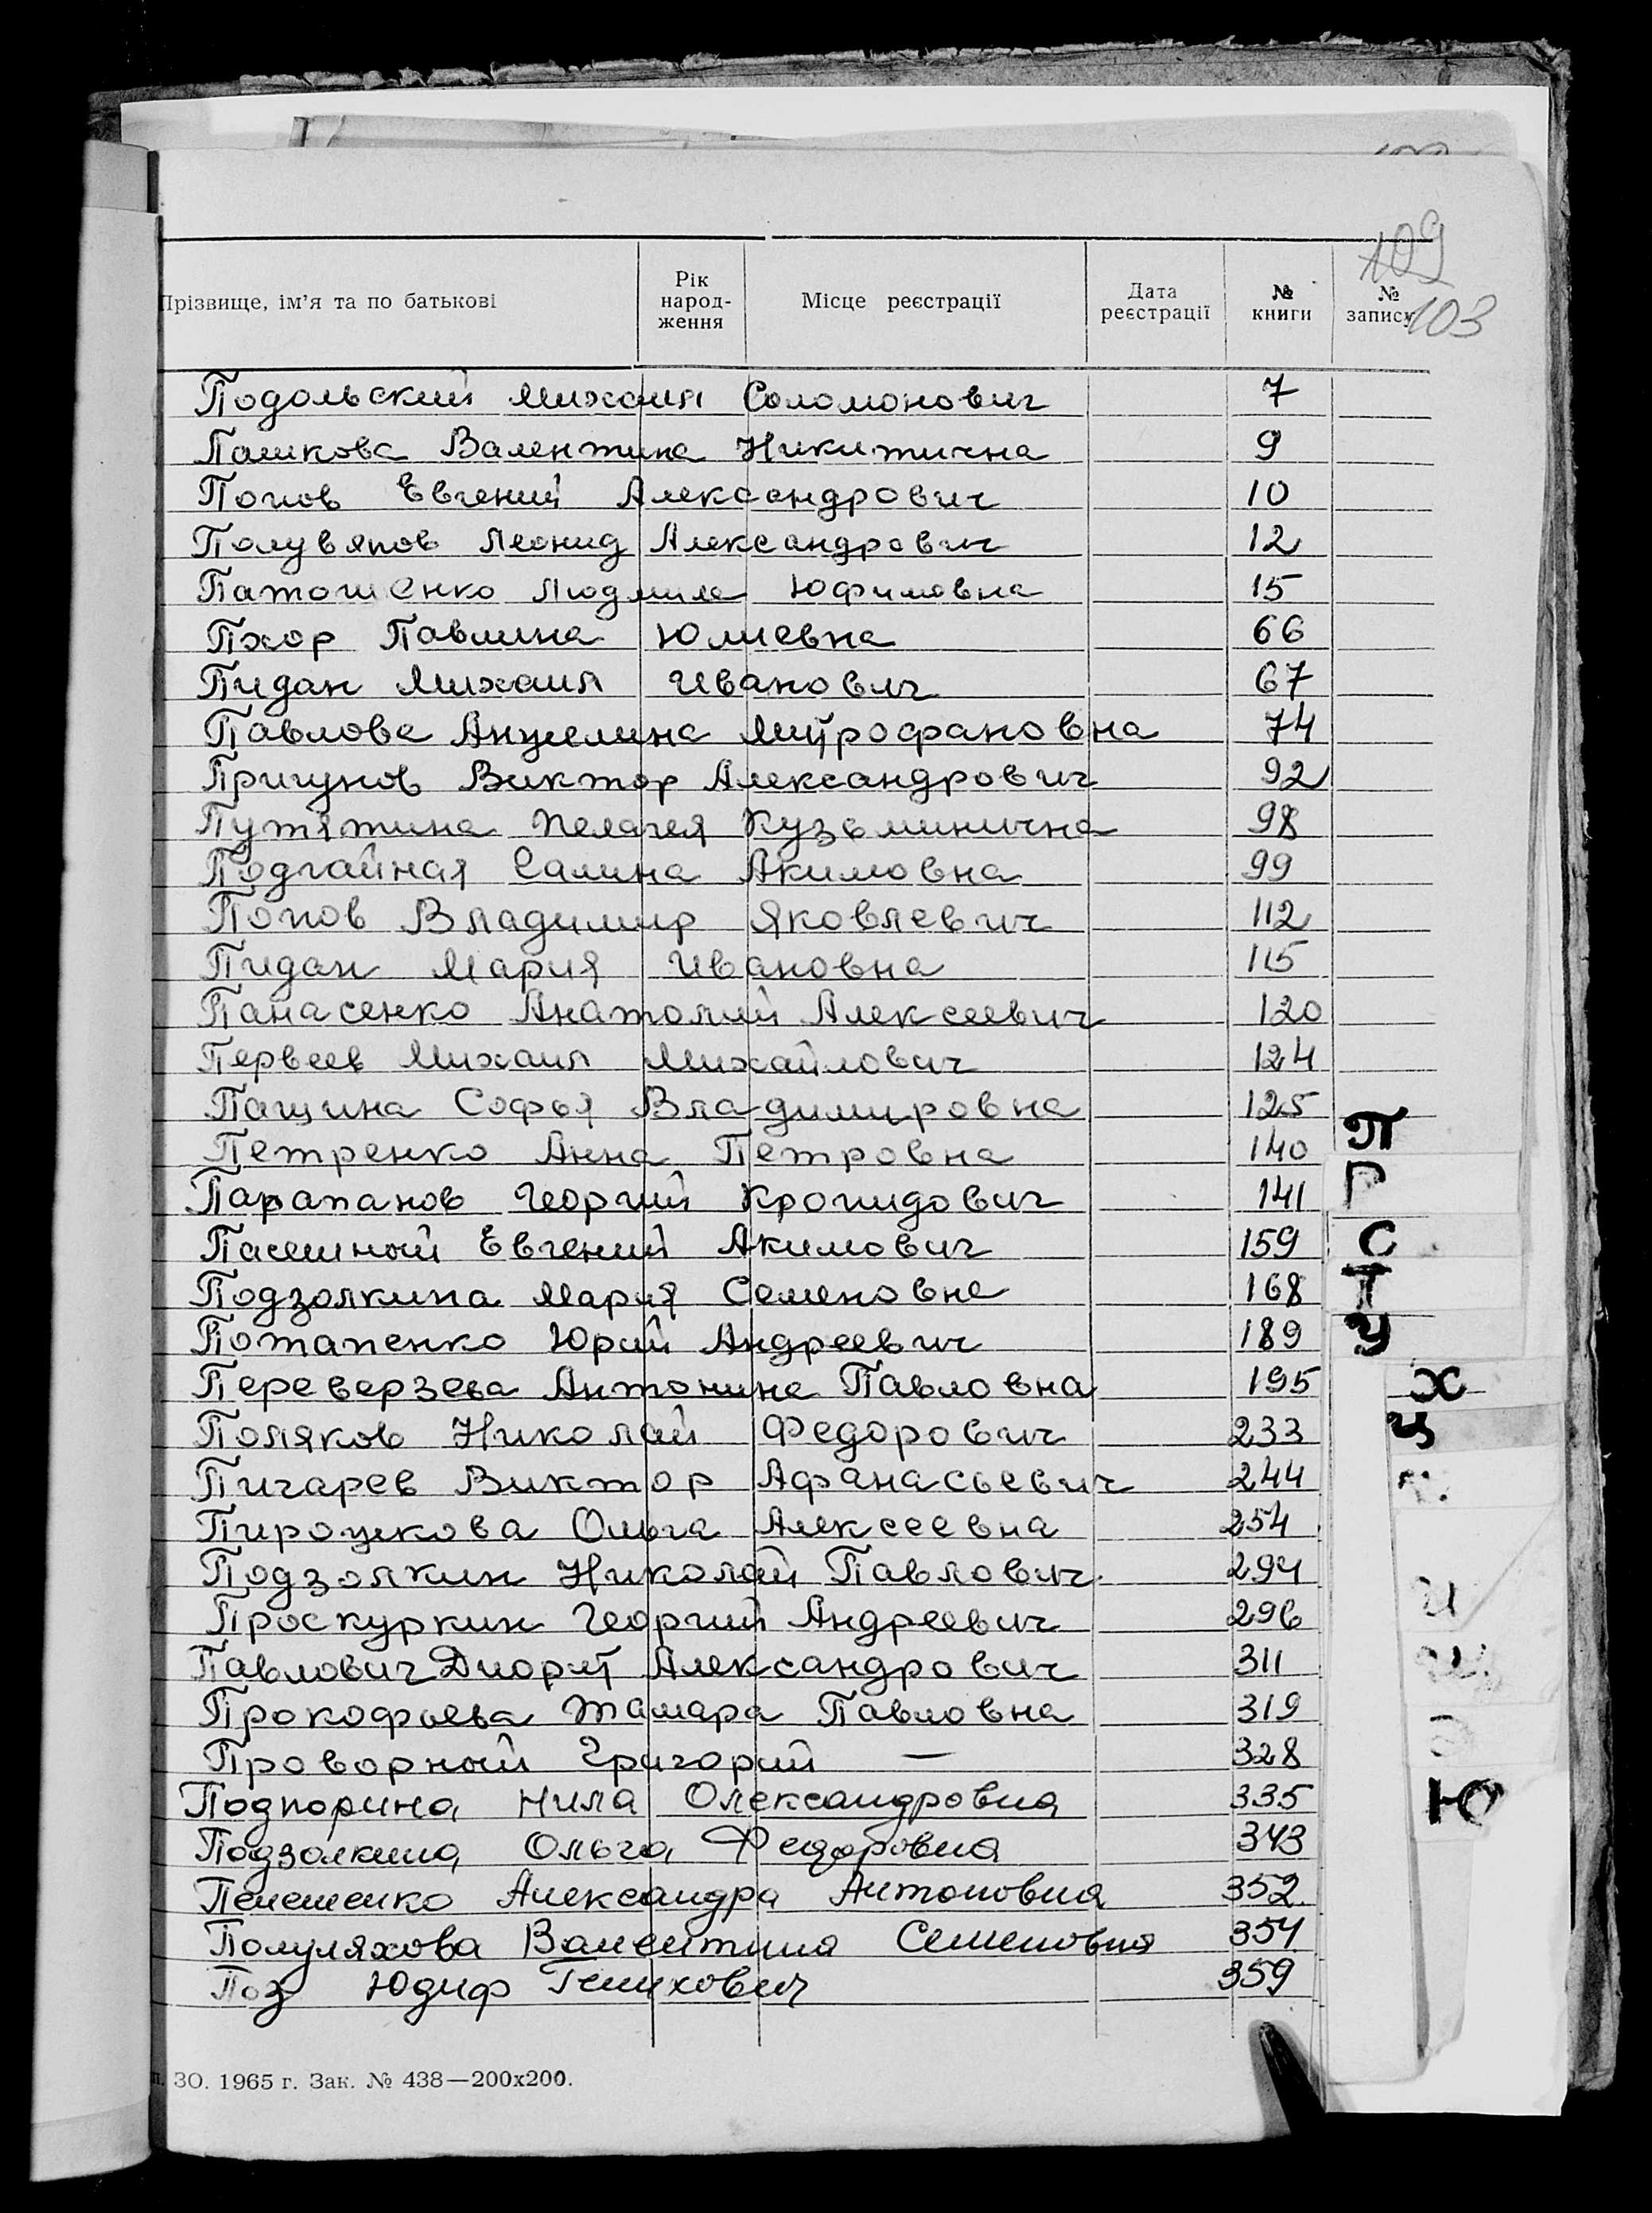 109
103
Прізвище, ім'я та по батькові Рік народ-ження Місце реєстрації Дата реєстрації № книги № запису
Подольский Михаил Соломонович 7
Пашкова Валентина Никитична 9
Попов Евгений Александрович 10
Полувяпов Леонид Александрович 12
Патошенко Людмила Юфимовна 15
Пхор Павлина Юлиевна 66
Пидан Михаил Иванович 67
Павлова Анжелина Митрофановна 74
Пригунов Виктор Александрович 92
Путятина Пелагея Кузьминична 98
Подгайная Галина Акимовна 99
Попов Владимир Яковлевич 112
Пидан Мария Ивановна 115
Панасенко Анатолий Алексеевич 120
Первеев Михаил Михайлович 124
Пащина Софья Владимировна 125
Петренко Анна Петровна 140
Парапанов Георгий Кронидович 141
Пасешной Евгений Акимович 159
Подзолкина Мария Семеновна 168
Потапенко Юрий Андреевич 189
Переверзева Антонина Павловна 195
Поляков Николай Федорович 233
Пигарев Виктор Афанасьевич 244
Пироцкова Ольга Алексеевна 254
Подзолкин Николай Павлович 294
Проскуркин Георгий Андреевич 296
Павлович Диорит Александрович 311
Прокофьева Тамара Павловна 319
Проворный Григорий — 328
Подпорина Нила Олександровна 335
Подзолкина Ольга Федоровна 343
Пелешенко Александра Антоновна 352
Полуляхова Валентина Семеновна 354
Поз Юдиф 359
П
Р
С
Т
У
Х
Ц
Ю
30. 1965 г. Зак. № 438—200х200.